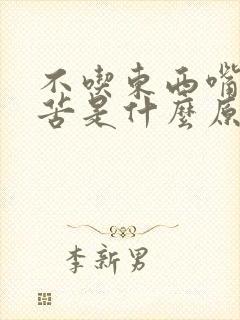 不喫東西嘴
苦是什麼原
李新男